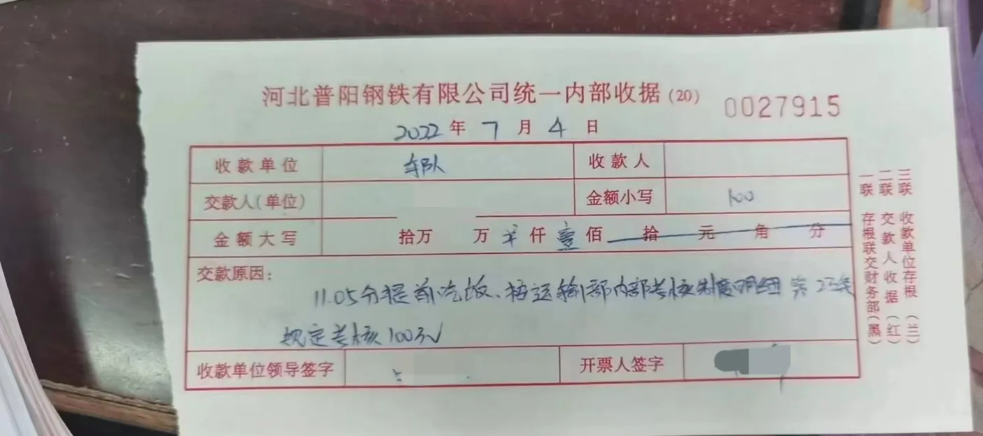 河北普阳钢铁有限公司统一内部收据(20) 0027915
2022年7月4日
收款单位 车队 收款人
交款人(单位) 金额小写 100
金额大写 拾万 万 仟壹佰 拾 元 角 分
交款原因:
11.05分提前吃饭、按运输部内部考核制度明细第23条
规定考核100元
收款单位领导签字 开票人签字
一联 存根联交财务部(黑)
二联 交款人收据(红)
三联 收款单位存根(兰)